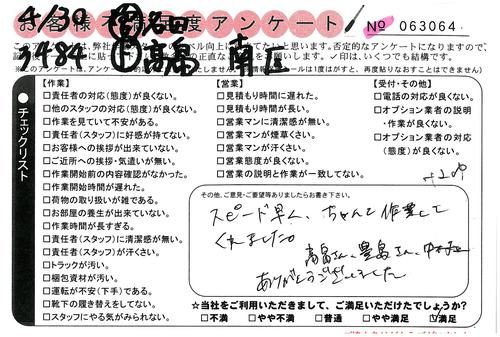 4/30
お客様不満足度アンケート
№ 063064
3484 南区
【作業】
□責任者の対応(態度)が良くない。
□他のスタッフの対応(態度)が良くない。
□作業を見ていて不安がある。
□責任者(スタッフ)に好感が持てない。
□お客様への挨拶が出来ていない。
□ご近所への挨拶・気遣いが無い。
□作業開始前の内容確認がなかった。
□作業開始時間が遅れた。
□荷物の取り扱いが雑である。
□お部屋の養生が出来ていない。
□作業時間が長すぎる。
□責任者(スタッフ)に清潔感が無い。
□責任者(スタッフ)が汗くさい。
□トラックが汚い。
□梱包資材が汚い。
□運転が不安(下手)である。
□靴下の履き替えをしてない。
□スタッフにやる気がみられない。
【営業】
□見積もり時間に遅れた。
□見積もり時間が長い。
□営業マンに清潔感が無い。
□営業マンが煙草くさい。
□営業マンが汗くさい。
□営業態度が良くない。
□営業の説明と作業が一致してない。
【受付・その他】
□電話の対応が良くない。
□オプション業者の説明
・作業が良くない。
□オプション業者の対応
(態度)が良くない。
チェックリスト
その他、ご意見・ご要望等ありましたらお書き下さい。
スピード早く、ちゃんと作業して
くれました。
高畠さん、豊島さん、
ありがとうございました
☆当社をご利用いただきまして、ご満足いただけたでしょうか?
□不満 □やや不満 □普通 □やや満足 ☑満足